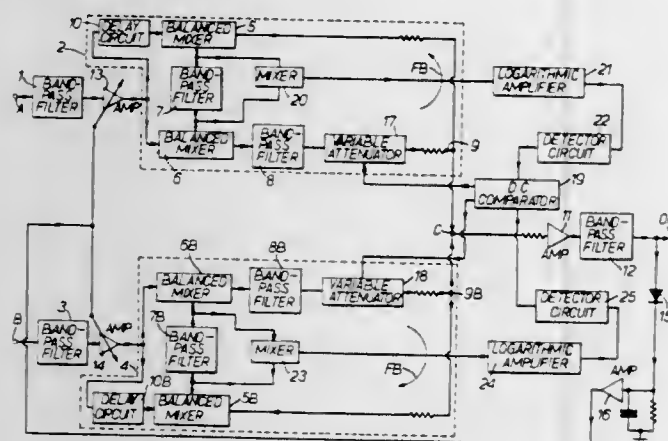 10
DELAY
CIRCUIT
BALANCED
MIXER
5
2
1
BAND-
PASS
FILTER
A
13
AMP
7
BAND-
PASS
FILTER
MIXER
20
FB
LOGARITHMIC
AMPLIFIER
21
BALANCED
MIXER
6
BAND-
PASS
FILTER
8
VARIABLE
ATTENUATOR
17
9
22
DETECTOR
CIRCUIT
D.C.
COMPARATOR
19
C
11
AMP
BAND-
PASS
FILTER
12
D
15
5B
BALANCED
MIXER
8B
BAND-
PASS
FILTER
VARIABLE
ATTENUATOR
18
9B
B
3
BAND-
PASS
FILTER
AMP
14
4
7B
BAND-
PASS
FILTER
MIXER
23
FB
DETECTOR
CIRCUIT
25
LOGARITHMIC
AMPLIFIER
24
10B
DELAY
CIRCUIT
BALANCED
MIXER
5B
AMP
16